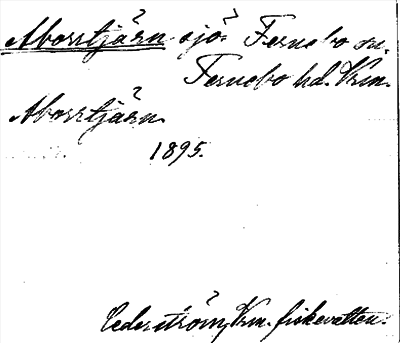 Aborrtjärn sjö Fernebo sn.
Fernebo hd. Vrm.
Aborrtjärn
1895.
Cederström, Vrm. fiskevatten.